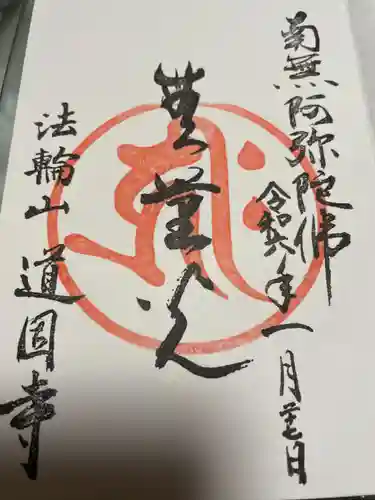 南無阿弥陀佛
令和六年一月廿七日
無量光
法輪山 道因寺